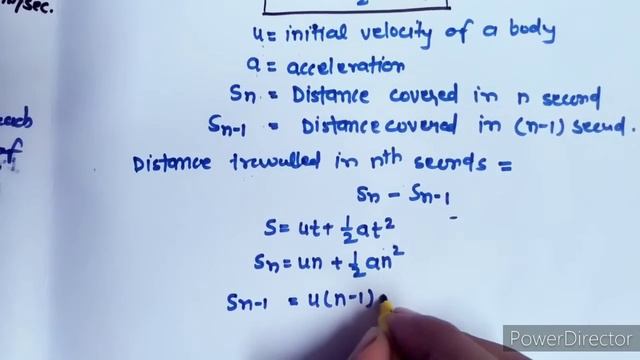 m/sec.
2
u = initial velocity of a body
a = acceleration
Sn = Distance covered in n second
Sn-1 = Distance covered in (n-1) secund.
each
of
Distance travulled in nth seconds =
Sn - Sn-1
S = ut + 1/2 at²
Sn = un + 1/2 an²
Sn-1 = u(n-1)
PowerDirector